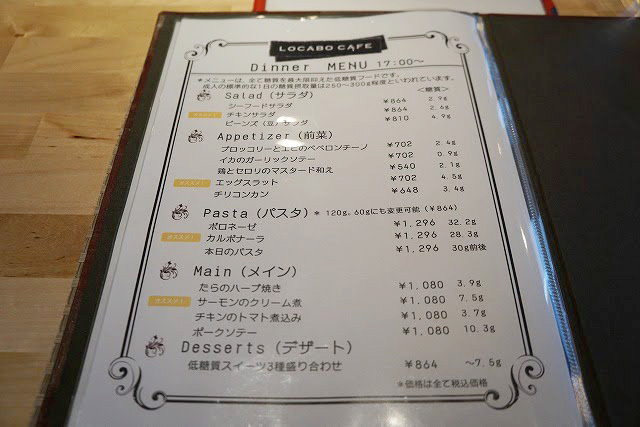 LOCABO CAFE
Dinner MENU 17:00～
＊メニューは、全て糖質を最大限抑えた低糖質フードです。
成人の標準的な1日の糖質摂取量は250～300g程度といわれています。
Salad (サラダ) <糖質>
シーフードサラダ ¥864 2.9g
オススメ! チキンサラダ ¥864 2.6g
ビーンズ (豆) サラダ ¥810 4.9g
Appetizer (前菜)
ブロッコリーとエビのペペロンチーノ ¥702 2.4g
イカのガーリックソテー ¥702 0.9g
鶏とセロリのマスタード和え ¥540 2.1g
オススメ! エッグスラット ¥702 4.5g
チリコンカン ¥648 3.4g
Pasta (パスタ) ＊120g。60gにも変更可能 (¥864)
ボロネーゼ ¥1,296 32.2g
オススメ! カルボナーラ ¥1,296 28.3g
本日のパスタ ¥1,296 30g前後
Main (メイン)
たらのハーブ焼き ¥1,080 3.9g
オススメ! サーモンのクリーム煮 ¥1,080 7.5g
チキンのトマト煮込み ¥1,080 3.7g
ポークソテー ¥1,080 10.3g
Desserts (デザート)
低糖質スイーツ3種盛り合わせ ¥864 ～7.5g
＊価格は全て税込価格